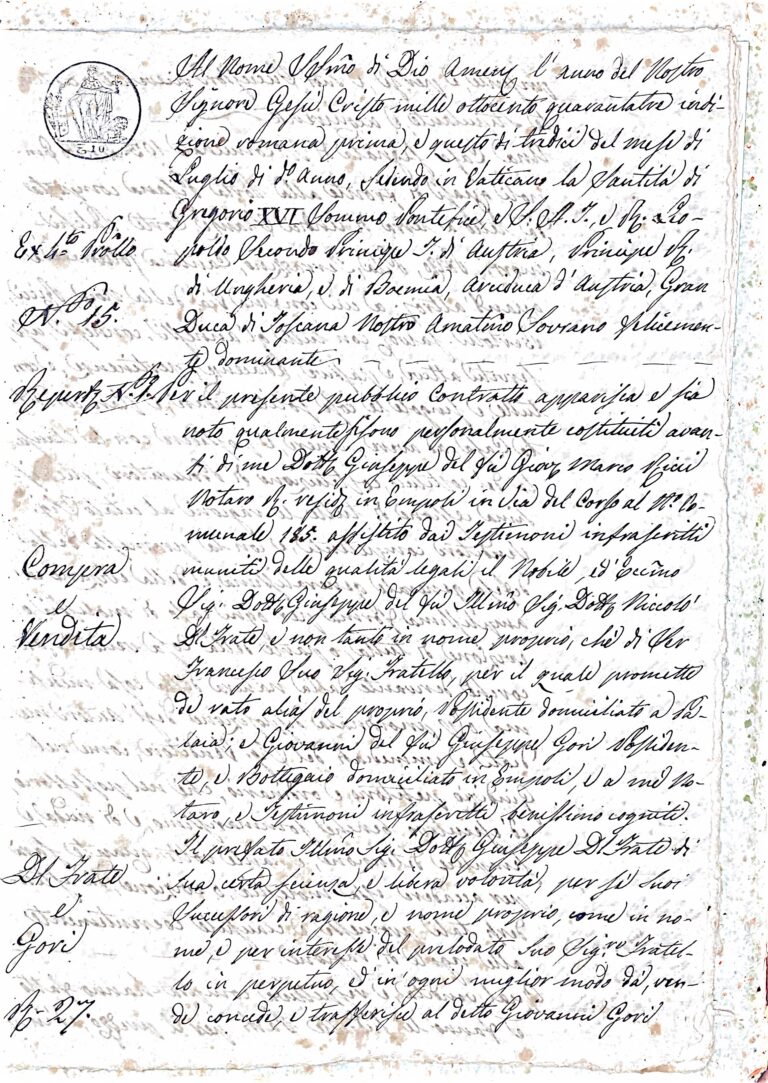 Al Nome SSmo di Dio Amen l'anno del Nostro
Signore Gesù Cristo mille ottocento quarantatre indi-
zione romana prima, e questo dì tredici del mese di
Luglio di do anno, sedendo in Vaticano la Santità di
Gregorio XVI Sommo Pontefice, e S. A. I., e R. Leo-
poldo Secondo Principe I. d'Austria, Principe R.
di Ungheria, e di Boemia, Arciduca d'Austria, Gran
Duca di Toscana Nostro Amatmo Sovrano felicemen-
te dominante
Ex 4to Prollo
No 15.
Repert. N. 9.
Per il presente pubblico Contratto apparisca e sia
noto qualmente si sono personalmente costituiti avan-
ti di me Dott Giuseppe del fù Gio: Marco Ricci
Notaro R. resid. in Empoli in via del Corso al No Co-
munale 185. assistito dai Testimoni infrascritti
muniti delle qualità legali il Nobile, ed Eccmo
Sig. Dott Giuseppe del fù Illmo Sig. Dott Niccolò
Del Frate, e non tanto in nome proprio, che di Ser
Francesco Suo Sig. Fratello, per il quale promette
de rato alias del proprio, Possidente domiciliato a Pa-
laia; e Giovanni del fù Giuseppe Gori Possiden-
te, e Bottegaio domiciliato in Empoli, e a me No-
taro, e Testimoni infrascritti benissimo cogniti.
Compra
e
Vendita
Il prefato Illmo Sig. Dott Giuseppe Del Frate di
sua certa scienza, e libera volontà, per sè suoi
Successori di ragione, e nome proprio, come in no-
me, e per interesse del prelodato Suo Sigre Fratel-
lo in perpetuo, ed in ogni miglior modo dà, ven-
de concede, e trasferisce al detto Giovanni Gori
Del Frate
e
Gori
R. 27.